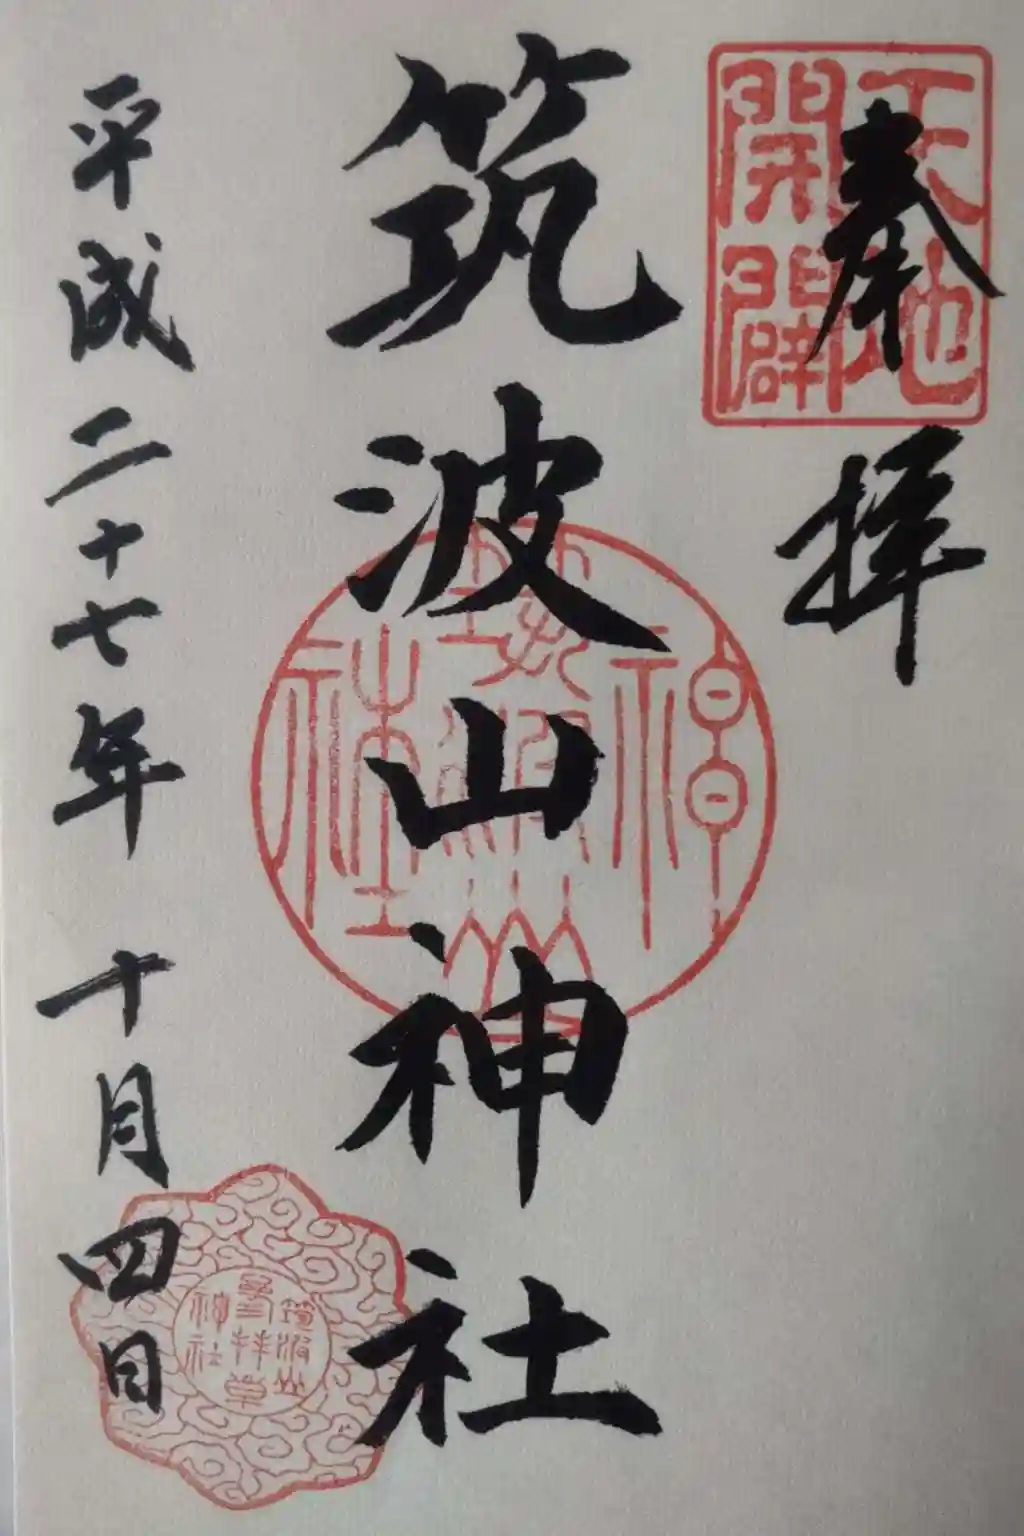 奉拝
天地
開闢
筑波山神社
神
筑波山
社
平成二十七年 十月四日
筑波山
参拝章
神社